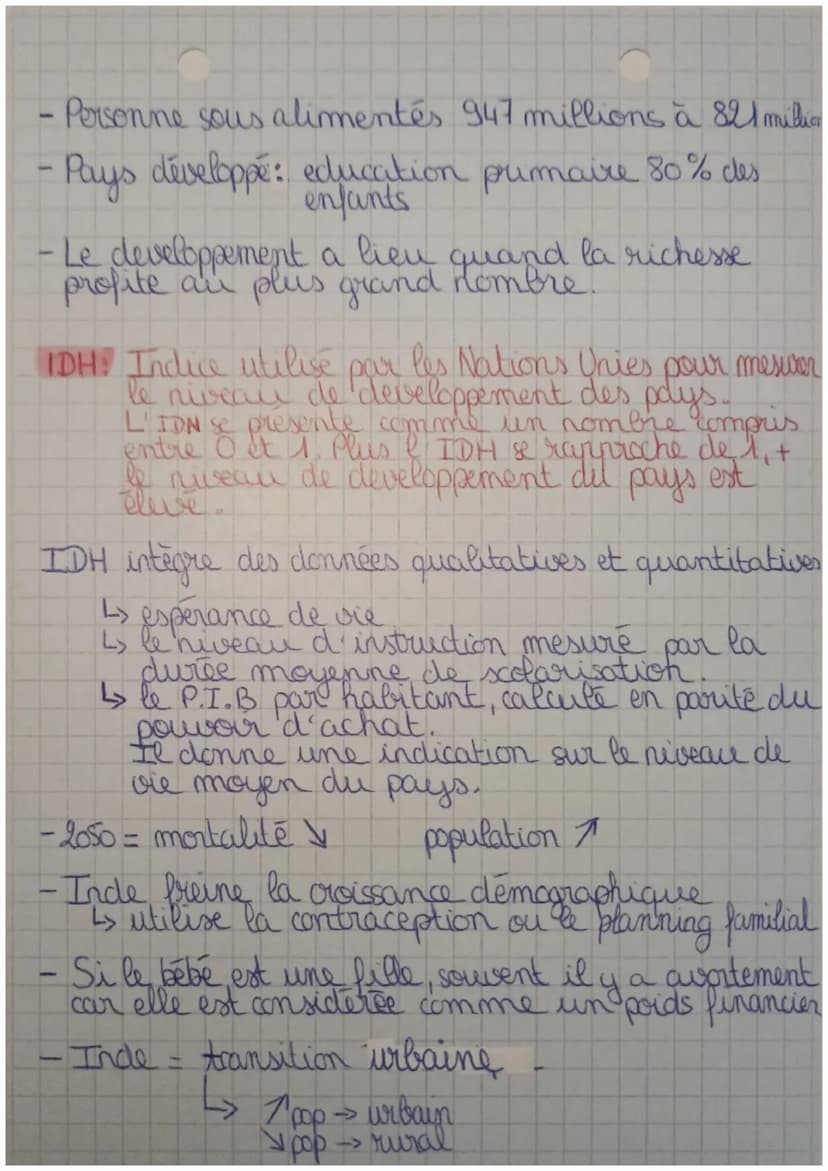 - Personne sous alimentés 947 millions à 821 million
- Pays développé: education primaire 80% des
enfants
- Le developpement a lieu quand la richesse
profite au plus grand nombre.
IDH: Indice utilisé par les Nations Unies pour mesurer
le niveau de developpement des pays.
L'IDN se présente comme un nombre compris
entre 0 et 1. Plus l'IDH se rapproche de 1, +
le niveau de developpement du pays est
élevé.
IDH intègre des données qualitatives et quantitatives
↳ espérance de vie
↳ le niveau d'instruction mesuré par la
durée moyenne de scolarisation.
↳ le P.I.B par habitant, calculé en parité du
pouvoir d'achat.
Il donne une indication sur le niveau de
vie moyen du pays.
- 2050 = mortalité ↘ population ↗
- Inde freine la croissance démographique
↳ utilise la contraception ou le planning familial
- Si le bébé est une fille, souvent il y a avortement
car elle est considérée comme un poids financier
- Inde = transition urbaine
↳ ↗ pop → urbain
↘ pop → rural